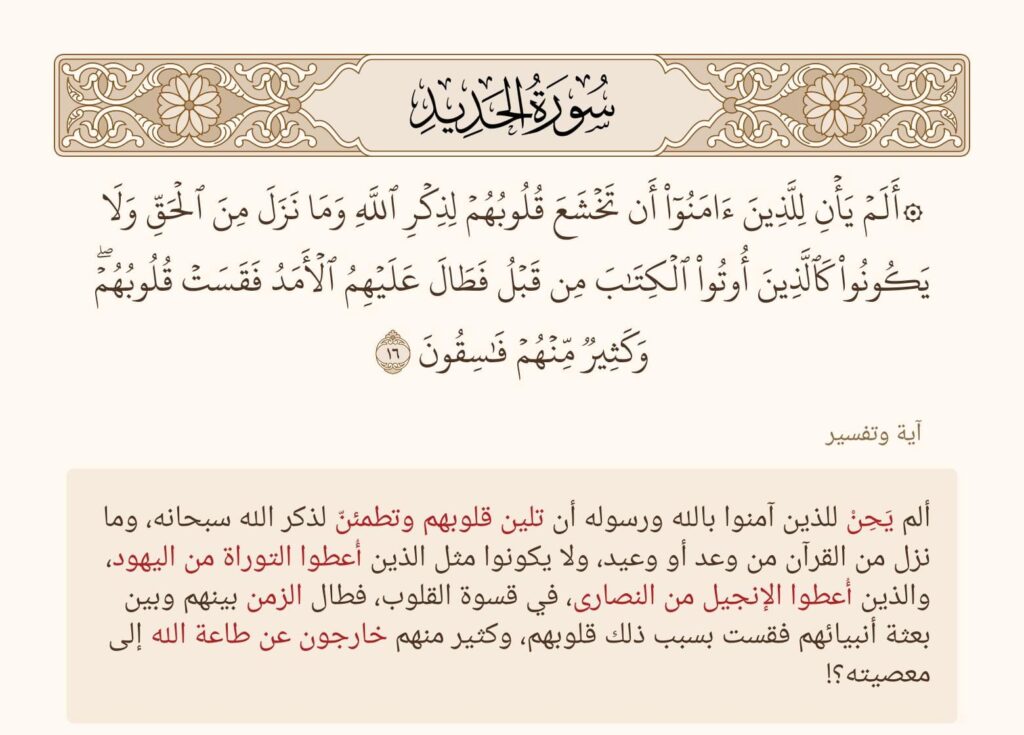 سُورَةُ الحَدِيدِ
۞أَلَمۡ يَأۡنِ لِلَّذِينَ ءَامَنُوٓاْ أَن تَخۡشَعَ قُلُوبُهُمۡ لِذِكۡرِ ٱللَّهِ وَمَا نَزَلَ مِنَ ٱلۡحَقِّ وَلَا
يَكُونُواْ كَٱلَّذِينَ أُوتُواْ ٱلۡكِتَٰبَ مِن قَبۡلُ فَطَالَ عَلَيۡهِمُ ٱلۡأَمَدُ فَقَسَتۡ قُلُوبُهُمۡۖ
وَكَثِيرٞ مِّنۡهُمۡ فَٰسِقُونَ ١٦
آية وتفسير
ألم يَحِنْ للذين آمنوا بالله ورسوله أن تلين قلوبهم وتطمئنّ لذكر الله سبحانه، وما
نزل من القرآن من وعد أو وعيد، ولا يكونوا مثل الذين أُعطوا التوراة من اليهود،
والذين أُعطوا الإنجيل من النصارى، في قسوة القلوب، فطال الزمن بينهم وبين
بعثة أنبيائهم فقست بسبب ذلك قلوبهم، وكثير منهم خارجون عن طاعة الله إلى
معصيته؟!